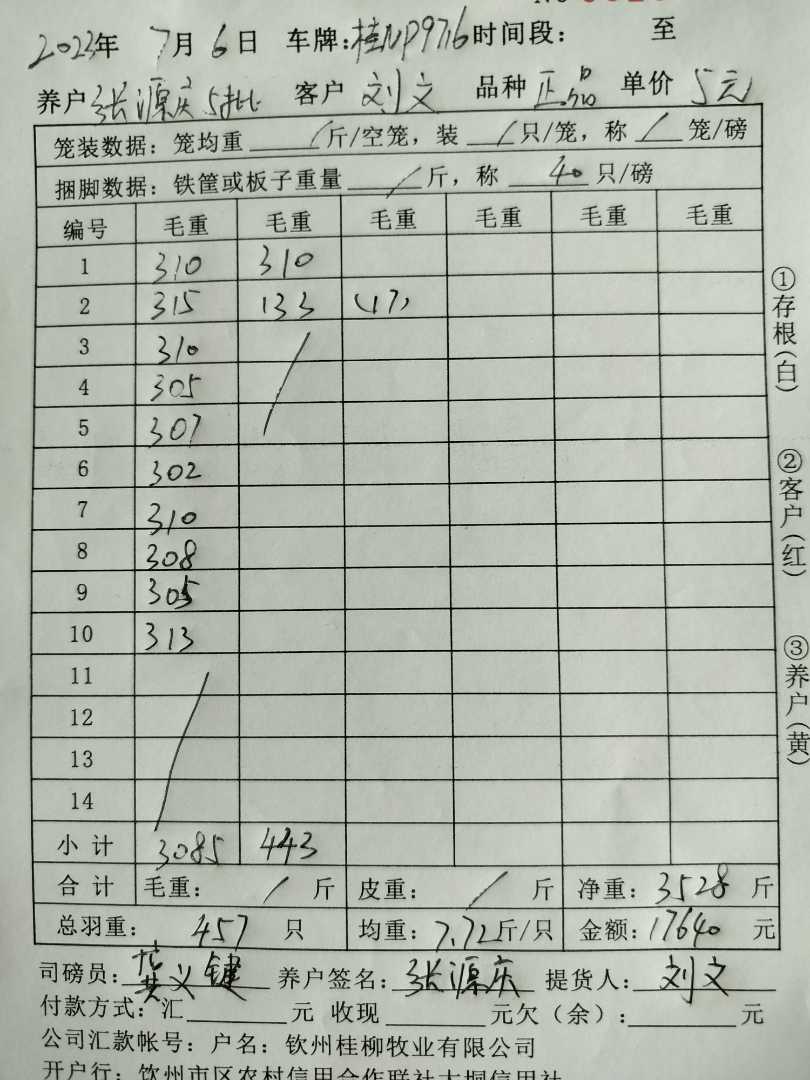 2023年 7月 6日 车牌:桂NP9716 时间段: 至
养户 张源庆 5批 客户 刘文 品种 正品 单价 5元
笼装数据: 笼均重 / 斤/空笼, 装 / 只/笼, 称 / 笼/磅
捆脚数据: 铁筐或板子重量 / 斤, 称 40 只/磅
编号 毛重 毛重 毛重 毛重 毛重 毛重
1 310 310
2 315 133 (17)
3 310 /
4 305
5 307
6 302
7 310
8 308
9 305
10 313
11 /
12
13
14
小计 3085 443
合计 毛重: / 斤 皮重: / 斤 净重: 3528 斤
总羽重: 457 只 均重: 7.72斤/只 金额: 17640 元
司磅员: 义键 养户签名: 张源庆 提货人: 刘文
付款方式: 汇 元 收现 元欠(余): 元
公司汇款帐号: 户名: 钦州桂柳牧业有限公司
开户行: 钦州市区农村信用合作联社大垌信用社
①存根(白)
②客户(红)
③养户(黄)